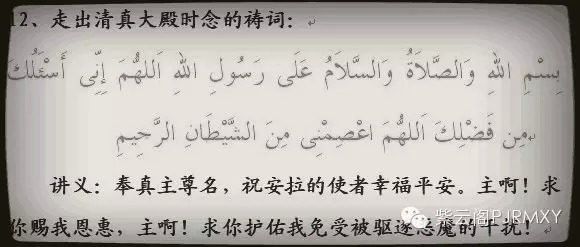 12、走出清真大殿时念的祷词：
بِسْمِ اللهِ وَالصَّلَاةُ وَالسَّلَامُ عَلَى رَسُولِ اللهِ اَللهُمَ إِنِّى أَسْئَلُكَ
مِن فَضْلِكَ اَللهُمَ اعْصِمْنِى مِنَ الشَّيْطَانِ الرَّحِيمِ
讲义：奉真主尊名，祝安拉的使者幸福平安。主啊！求
你赐我恩惠，主啊！求你护佑我免受被驱逐恶魔的干扰！
紫云阁PJRMXY